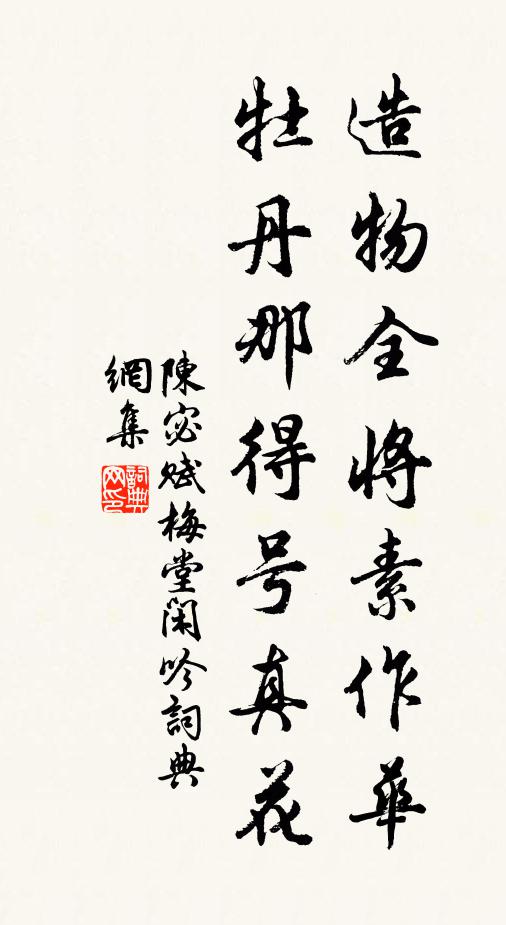 造物全将素作華
牡丹那得号真花
陳宓賦梅堂閑吟詞典
網集
詞典網印